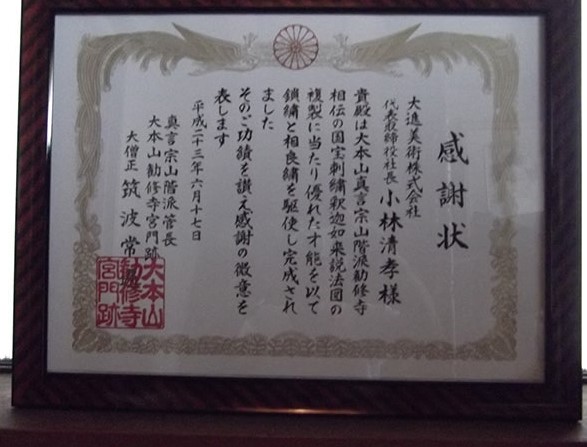 感謝状
大進美術株式会社
代表取締役社長 小林清孝様
貴殿は大本山真言宗山階派勧修寺
相伝の国宝刺繍釈迦如来説法図の
複製に当たり優れた才能を以て
鎖繍と相良繍を駆使し完成され
ました
そのご功績を讃え感謝の微意を
表します
平成二十三年六月十七日
真言宗山階派管長
大本山勧修寺宮門跡
大僧正 筑波常
大本山
勧修寺
宮門跡